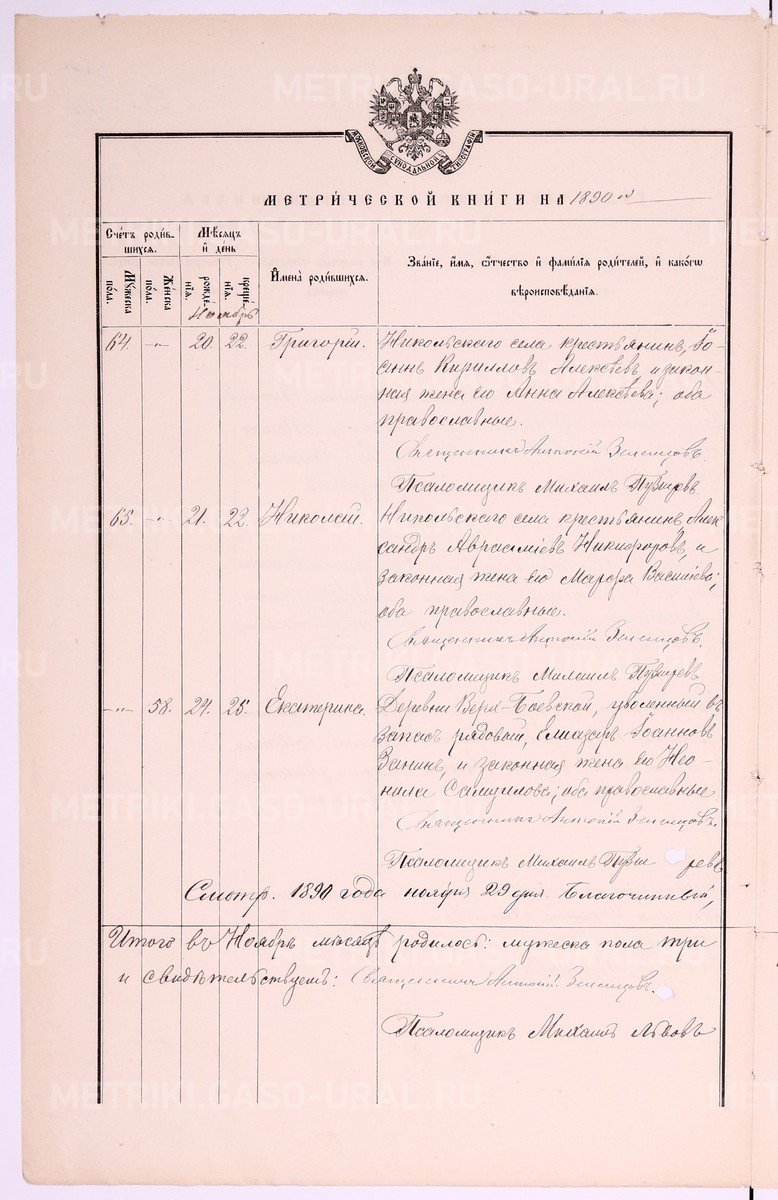 МОСКОВСКОЙ СУНОДАЛЬНОЙ ТИПОГРАФІИ
МЕТРИ́ЧЕСКОЙ КНИ́ГИ НА 1890 й
Счетъ роди́вшихся.
Мѣсяцъ и день
Имена̀ роди́вшихся.
Зва́ніе, и́мя, ѻтчество и фами́лія роди́телей, и како́гѡ
вѣроисповѣ́данія.
Му́жеска по́ла.
Же́нска по́ла.
рожде́нія.
креще́нія.
Ноябрь
64. -„- 20. 22. Григорій. Никольскаго села крестьянинъ, Іо-
аннъ Кирилловъ Алексѣевъ, и закон-
ная жена его Анна Алексѣева; оба
православные.
Священникъ Антоній Зеленцовъ.
Псаломщикъ Михаилъ Пузыревъ
65. -„- 21. 22. Николай. Никольскаго села крестьянинъ, Алек-
сандръ Авраамiевъ Никифоровъ, и
законная жена его Марѳа Васильева;
оба православные.
Священникъ Антоній Зеленцовъ.
Псаломщикъ Михаилъ Пузыревъ
-„- 58. 24. 25. Екатерина. Деревни Верх-Боевской, уволенный въ
запасъ рядовый, Елиазаръ Іоанновъ
Ванинъ, и законная жена его Нео-
нила Самуилова; оба православные
Священникъ Антоній Зеленцовъ.
Псаломщикъ Михаилъ Пузыревъ
Смотр. 1890 года ноября 29 дня. Благочинный,
Итого въ Ноябрѣ мѣсяцѣ родилось: мужеска пола три
и свидѣтельствуемъ: Священникъ Антоній Зеленцовъ.
Псаломщикъ Михаилъ
METRIKI.GASO-URAL.RU